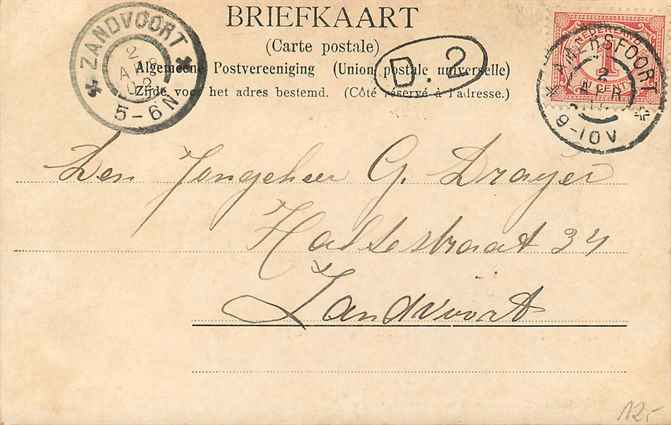 BRIEFKAART
(Carte postale)
Algemeene Postvereeniging (Union postale universelle)
Zijde voor het adres bestemd. (Côté réservé à l'adresse.)
ZANDVOORT
2
5-6N
D. 2
NEDERLAND
1
CENT
AMERSFOORT
2
APR
9-10V
Den Jongeheer G. Drayer
Haltestraat 34
Zandvoort
12,-